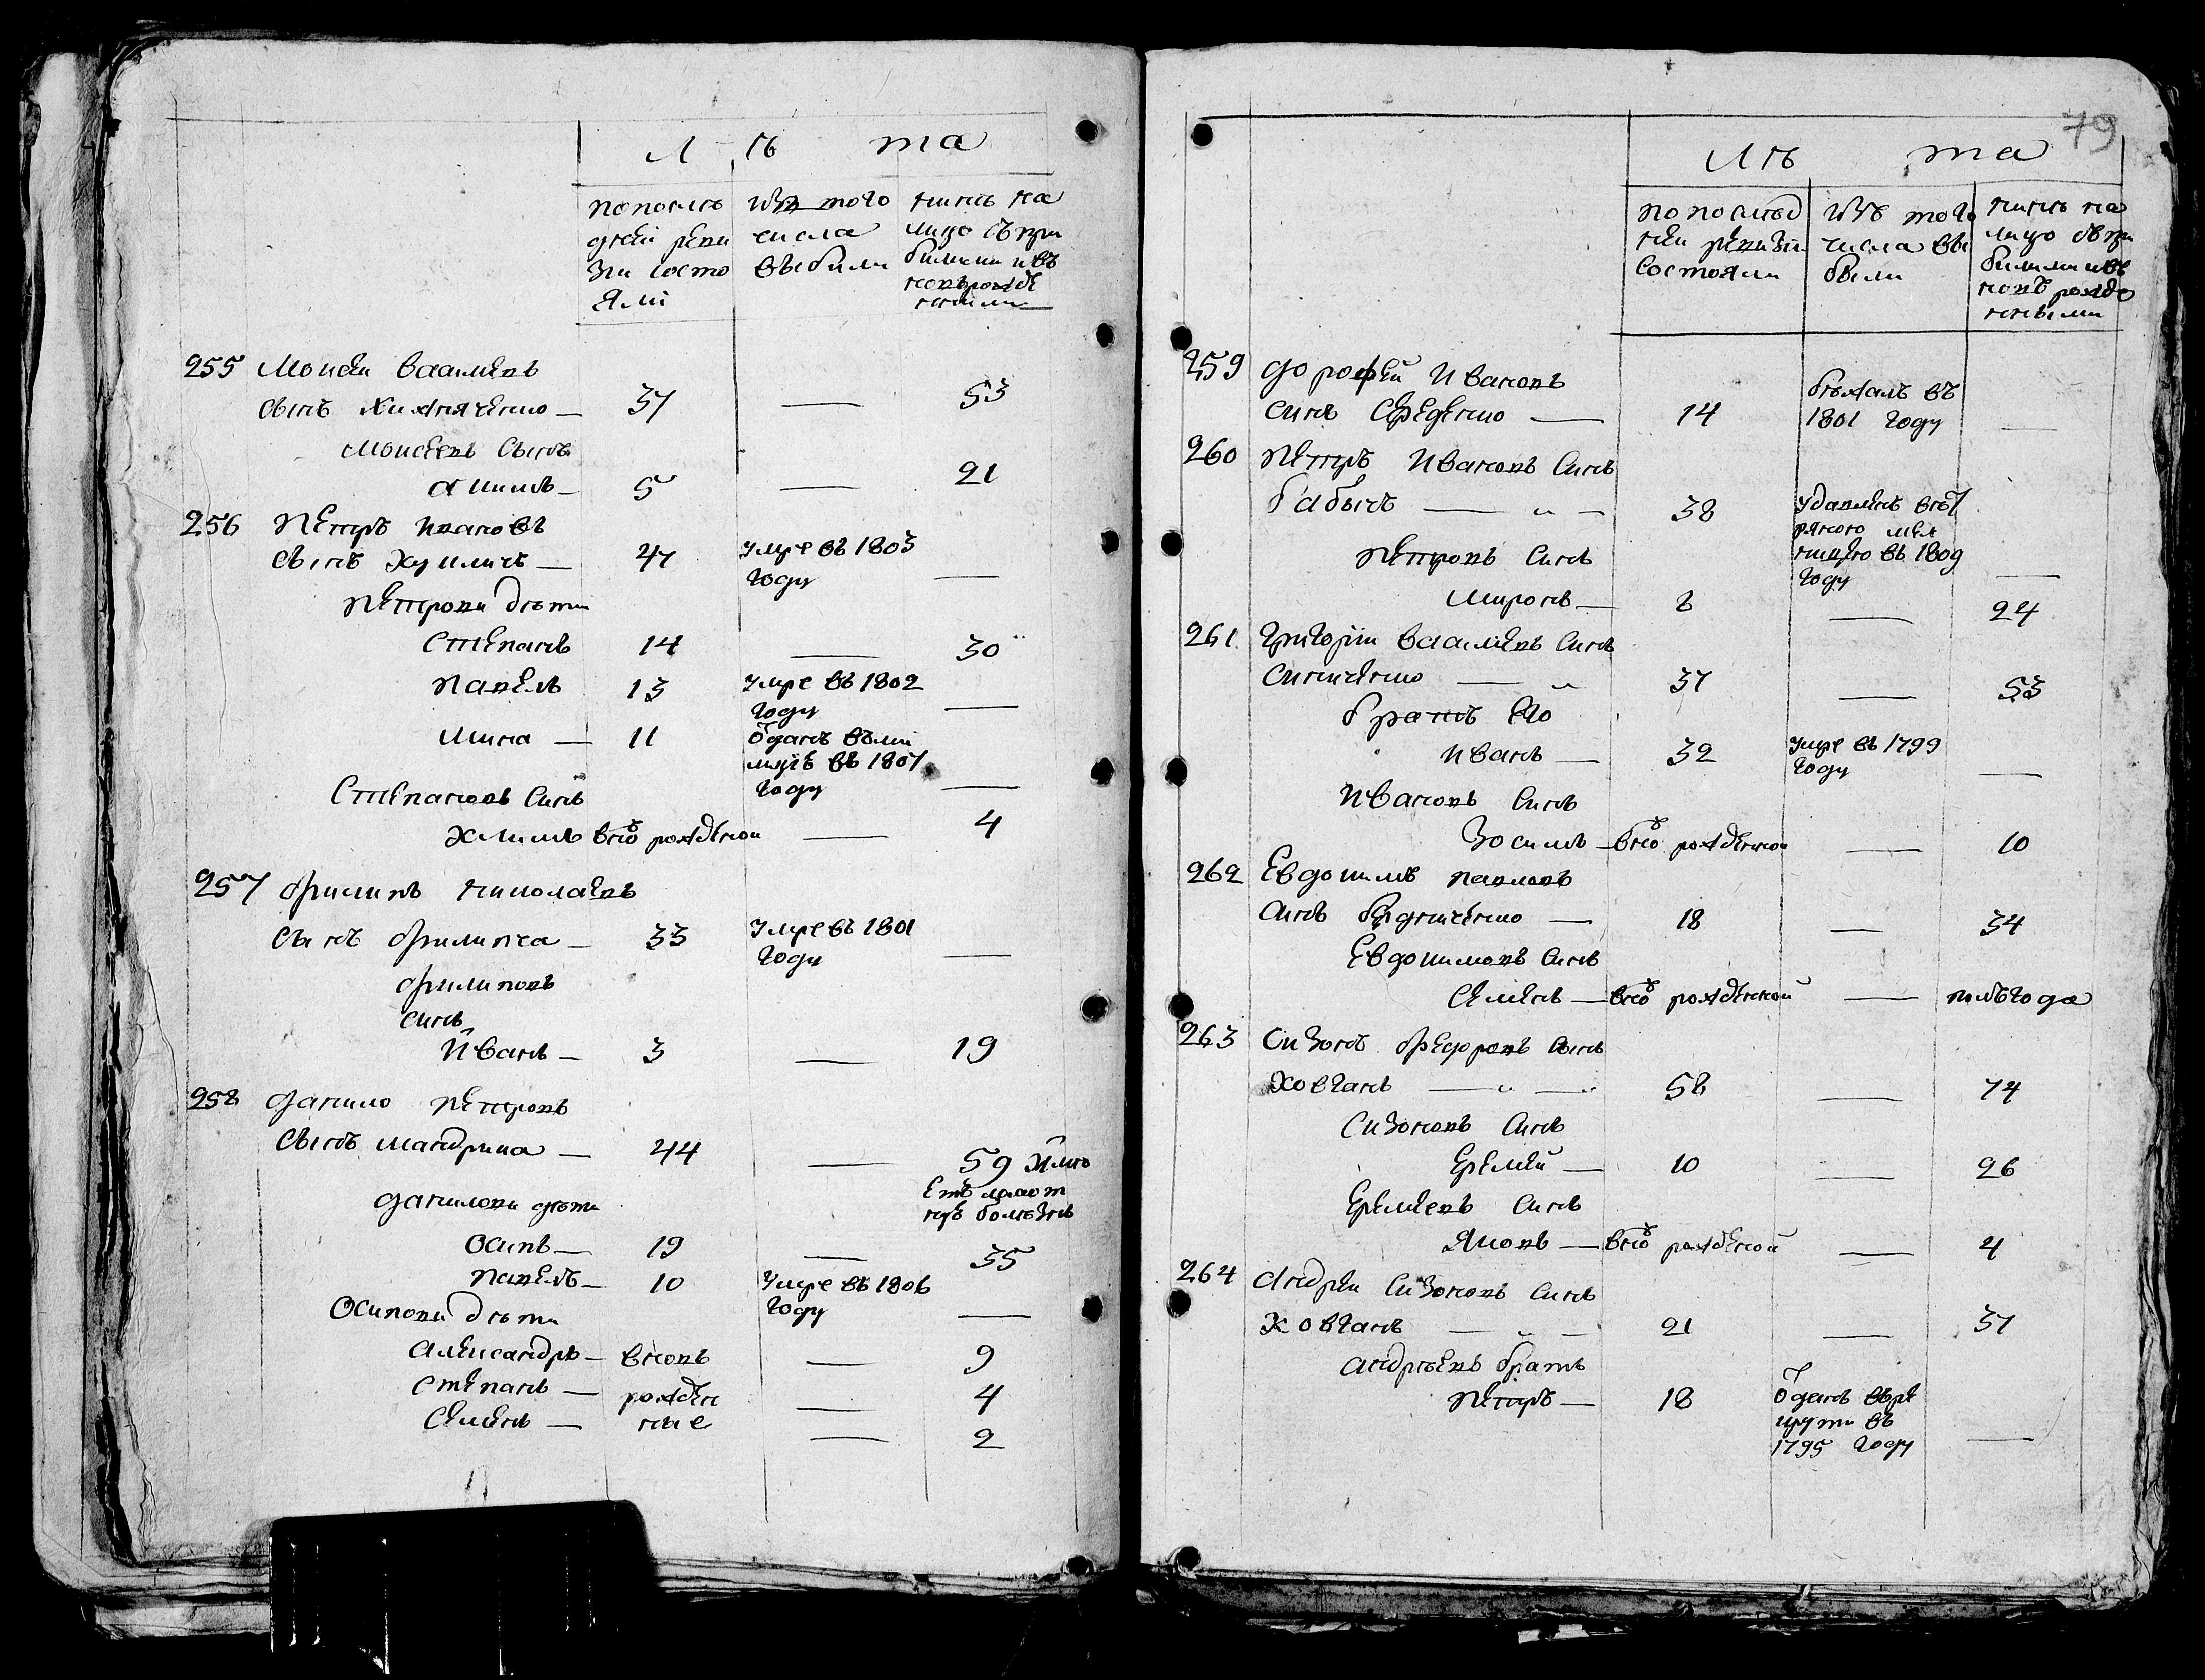 Лѣта
по послѣ
дней реви
зіи состо
яли
изъ того
числа
выбыли
нынѣ на
лицо съ при
былыми и въ
новь рожде
нными
255 Моисей Васильевъ
сынъ Хижняченко — 37 — 53
Моисеевъ сынъ
Акимъ — 5 — 21
256 Петръ Ивановъ
сынъ — 47 умре въ 1803
году —
Петровы дѣти
Степанъ 14 — 30
Павелъ 13 умре въ 1802
году —
Мина — 11 отданъ въ ми
лицію въ 1807
году —
Степановъ сынъ
Климъ внов рожденой — 4
257 Филипъ Николаевъ
сынъ Филипка — 33 умре въ 1801
году —
Филиповъ
сынъ
Иванъ — 3 — 19
258 Данило Петровъ
сынъ Мандрика — 44 — 59 имѣ
етъ
болѣзнь
Даниловы дѣти
Осипъ — 19 — 35
Павелъ — 10 умре въ 1806
году —
Осиповы дѣти
Александръ — вновь — 9
Степанъ — рожден — 4
Семенъ — ные — 2
79
Лѣта
по послѣд
ней ревизіи
состояли
изъ того
числа вы
были
нынѣ на
лицо съ при
былыми и въ
новъ рожде
нными
259 Дорофей Ивановъ
сынъ Середенко — 14 бѣжалъ въ
1801 году —
260 Петръ Ивановъ сынъ
Бабычъ — 38 удаленъ
въ 1809
году —
Петровъ сынъ
Миронъ — 8 — 24
261 Григорій Васильевъ сынъ
Синиченко — 37 — 53
братъ его
Иванъ — 32 умре въ 1799
году —
Ивановъ сынъ
Зосимъ — внов рожденной — 10
262 Евдокимъ Павловъ
сынъ Бедниченко — 18 — 34
Евдокимовъ сынъ
Семенъ — внов рожденной — полъгода
263 Сизонъ Федоровъ сынъ
Ховганъ — 58 — 74
Сизоновъ сынъ
Еремей — 10 — 26
Еремеевъ сынъ
Яковъ — внов рожденой — 4
264 Андрей Сизоновъ сынъ
Ковганъ — 21 — 37
Андрѣевъ братъ
Петръ — 18 отданъ въ ре
круты въ
1795 году —